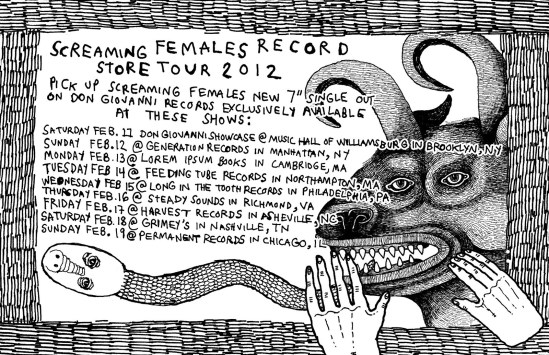 SCREAMING FEMALES RECORD
STORE TOUR 2012
PICK UP SCREAMING FEMALES NEW 7" SINGLE OUT
ON DON GIOVANNI RECORDS EXCLUSIVELY AVAILABLE
AT THESE SHOWS:
SATURDAY FEB. 11 DON GIOVANNI SHOWCASE @ MUSIC HALL OF WILLIAMSBURG IN BROOKLYN, NY
SUNDAY FEB. 12 @ GENERATION RECORDS IN MANHATTAN, NY
MONDAY FEB. 13 @ LOREM IPSUM BOOKS IN CAMBRIDGE, MA
TUESDAY FEB 14 @ FEEDING TUBE RECORDS IN NORTHAMPTON, MA
WEDNESDAY FEB 15 @ LONG IN THE TOOTH RECORDS IN PHILADELPHIA, PA
THURSDAY FEB. 16 @ STEADY SOUNDS IN RICHMOND, VA
FRIDAY FEB. 17 @ HARVEST RECORDS IN ASHEVILLE, NC
SATURDAY FEB. 18 @ GRIMEY'S IN NASHVILLE, TN
SUNDAY FEB. 19 @ PERMANENT RECORDS IN CHICAGO, IL